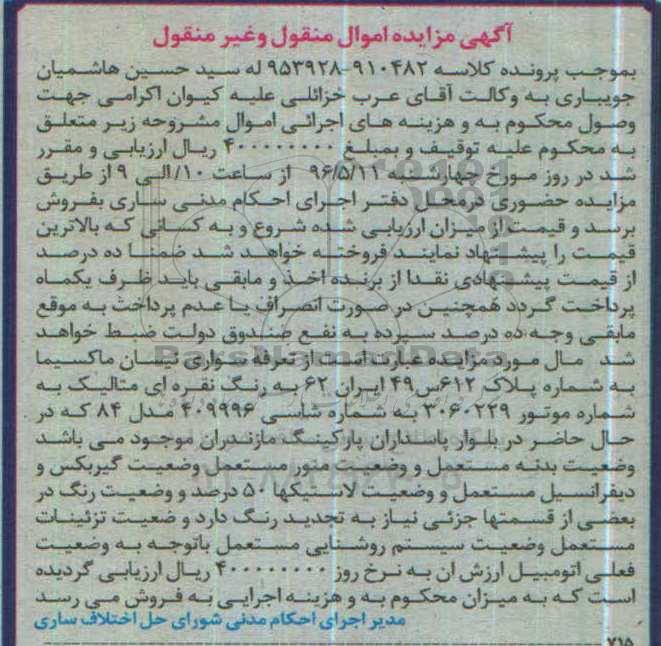 آگهی مزایده اموال منقول وغیر منقول
بموجب پرونده کلاسه ۹۱۰۴۸۲-۹۵۳۹۲۸ له سید حسین هاشمیان
جویباری به وکالت آقای عرب خزائلی علیه کیوان اکرامی جهت
وصول محکوم به و هزینه های اجرائی اموال مشروحه زیر متعلق
به محکوم علیه توقیف و بمبلغ ۴۰۰۰۰۰۰۰۰ ریال ارزیابی و مقرر
شد در روز مورخ چهارشنبه ۹۶/۵/۱۱ از ساعت ۱۰/الی ۹ از طریق
مزایده حضوری درمحل دفتر اجرای احکام مدنی ساری بفروش
برسد و قیمت از میزان ارزیابی شده شروع و به کسانی که بالاترین
قیمت را پیشنهاد نمایند فروخته خواهد شد ضمنا ده درصد
از قیمت پیشنهادی نقدا از برنده اخذ و مابقی باید ظرف یکماه
پرداخت گردد همچنین در صورت انصراف یا عدم پرداخت به موقع
مابقی وجه ده درصد سپرده به نفع صندوق دولت ضبط خواهد
شد مال مورد مزایده عبارت است از تعرفه سواری نیسان ماکسیما
به شماره پلاک ۶۱۲س۴۹ ایران ۶۲ به رنگ نقره ای متالیک به
شماره موتور ۳۰۶۰۲۲۹ به شماره شاسی ۴۰۹۹۹۶ مدل ۸۴ که در
حال حاضر در بلوار پاسداران پارکینگ مازندران موجود می باشد
وضعیت بدنه مستعمل و وضعیت متور مستعمل وضعیت گیربکس و
دیفرانسیل مستعمل و وضعیت لاستیکها ۵۰ درصد و وضعیت رنگ در
بعضی از قسمتها جزئی نیاز به تجدید رنگ دارد و ضعیت تزئینات
مستعمل وضعیت سیستم روشنایی مستعمل باتوجه به وضعیت
فعلی اتومبیل ارزش ان به نرخ روز ۴۰۰۰۰۰۰۰۰ ریال ارزیابی گردیده
است که به میزان محکوم به و هزینه اجرایی به فروش می رسد
مدیر اجرای احکام مدنی شورای حل اختلاف ساری
۷۱۵
ParsNamadData